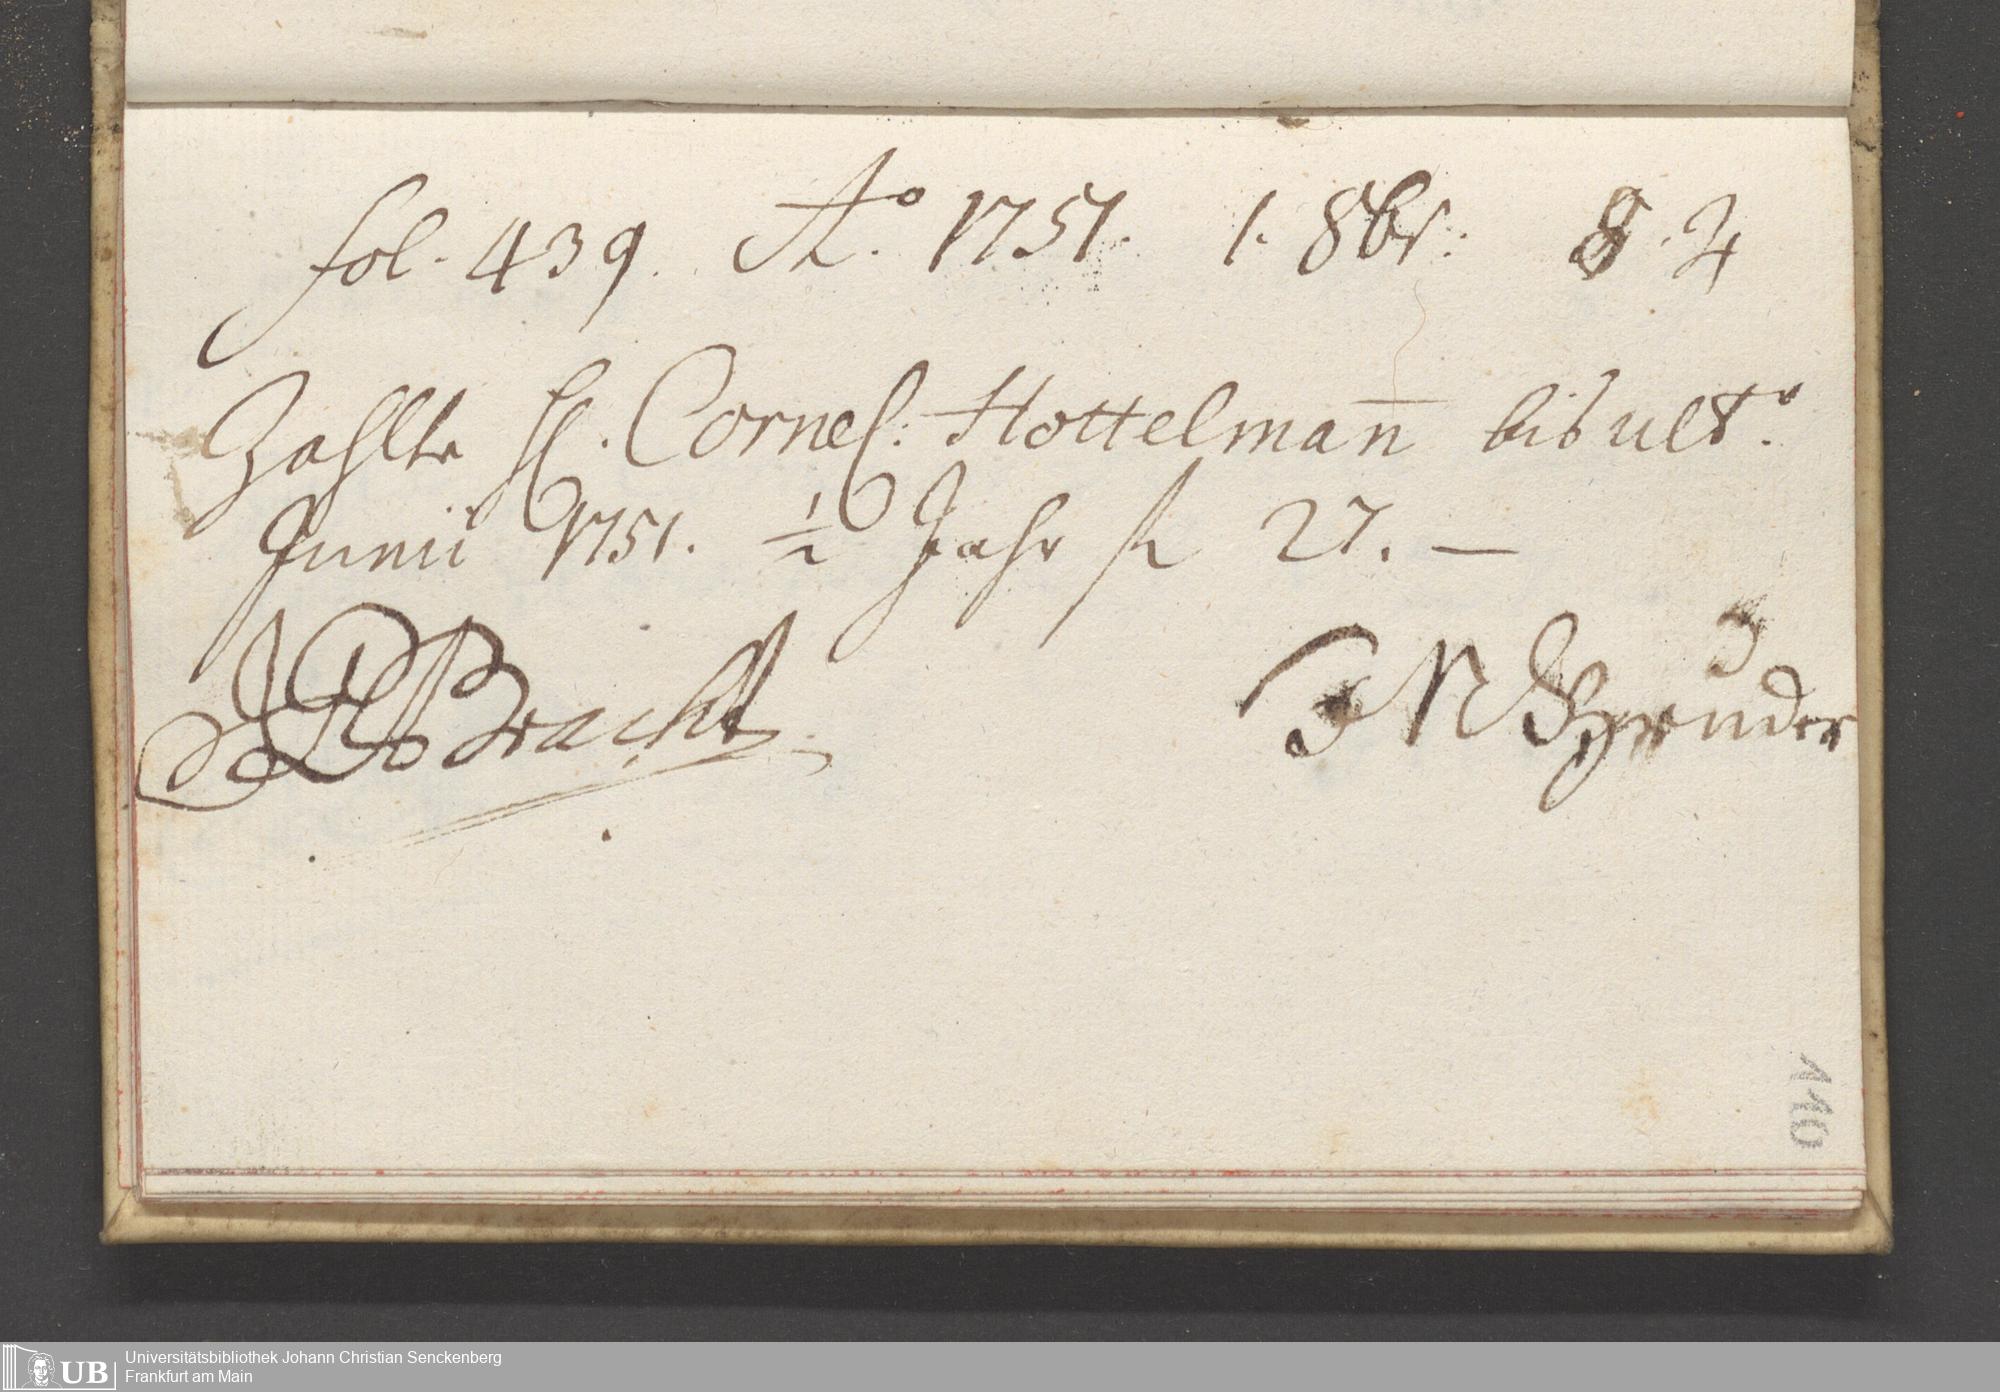 fol. 439. Ao. 1751. 1. 8br. 8. 4
Zahlte H. Cornel: Hottelman̄ bis ulto.
Junii 1751. ½ Jahr fl 27. —
Bracht
110
UB
Universitätsbibliothek Johann Christian Senckenberg
Frankfurt am Main